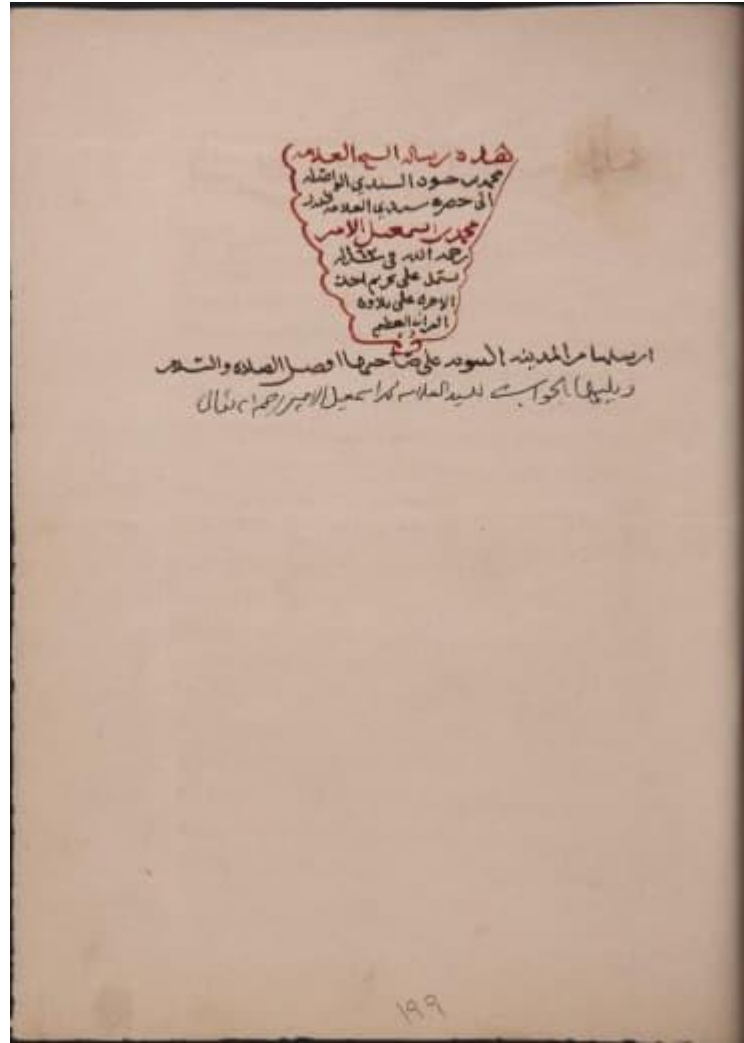 هذه رسالة الشيخ العلامة
محمد بن حيوة السندي الواصلة
الى حضرة سيدي العلامة البدر
محمد بن اسمعيل الامير
رحمه الله في
تشتمل على تحريم اخذ
الاجرة على تلاوة
القران العظيم
ارسلها من المدينة النبوية على صاحبها افضل الصلاة والسلام
ويليها الجواب للسيد العلامة محمد اسمعيل الامير رحمه الله تعالى
١٩٩